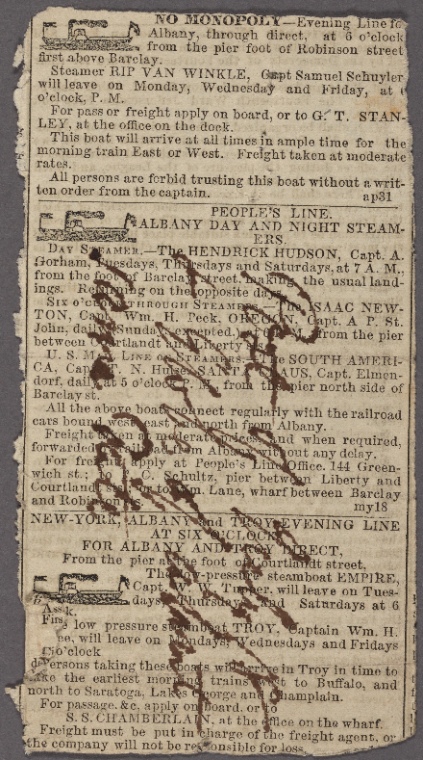 NO MONOPOLY—Evening Line fo
Albany, through direct, at 6 o'clock
from the pier foot of Robinson street
first above Barclay.
Steamer RIP VAN WINKLE, Capt Samuel Schuyler
will leave on Monday, Wednesday and Friday, at
o'clock, P. M.
For pass or freight apply on board, or to G. T. STAN-
LEY, at the office on the dock.
This boat will arrive at all times in ample time for the
morning train East or West. Freight taken at moderate
rates.
All persons are forbid trusting this boat without a writ-
ten order from the captain. ap31
PEOPLE'S LINE.
ALBANY DAY AND NIGHT STEAM-
ERS.
DAY STEAMER.—The HENDRICK HUDSON, Capt. A.
Gorham, Tuesdays, Thursdays and Saturdays, at 7 A. M.,
from the foot of Barclay street, making the usual land-
ings. Returning on the opposite days.
SIX o'clock THROUGH STEAMERS.—The ISAAC NEW-
TON, Capt. Wm. H. Peck, OREGON, Capt. A P. St.
John, daily, Sundays excepted, at 6 P. M., from the pier
between Courtlandt and Liberty
U. S. MAIL LINE OF STEAMERS.—The SOUTH AMERI-
CA, Capt. T. N. Hulse, SANTA CLAUS, Capt. Elmen-
dorf, daily at 5 o'clock P. M., from the pier north side of
Barclay st.
All the above boats connect regularly with the railroad
cars bound west, east and north from Albany.
Freight taken at moderate prices, and when required,
forwarded by railroad from Albany without any delay.
For freight apply at People's Line Office, 144 Green-
wich st.; to C. Schultz, pier between Liberty and
Courtlandt or to Wm. Lane, wharf between Barclay
and Robinson my18
NEW-YORK, ALBANY and TROY EVENING LINE
AT SIX O'CLOCK,
FOR ALBANY AND TROY DIRECT,
From the pier at the foot of Courtlandt street,
The low-pressure steamboat EMPIRE,
Capt. W. Tupper, will leave on Tues-
days, Thursdays and Saturdays at 6
low pressure steamboat TROY, Captain Wm. H.
will leave on Mondays, Wednesdays and Fridays
o'clock
Persons taking these boats will arrive in Troy in time to
take the earliest morning trains west to Buffalo, and
north to Saratoga, Lakes George and Champlain.
For passage, &c. apply on board, or to
S. S. CHAMBERLAIN, at the office on the wharf.
Freight must be put in charge of the freight agent, or
the company will not be responsible for loss.